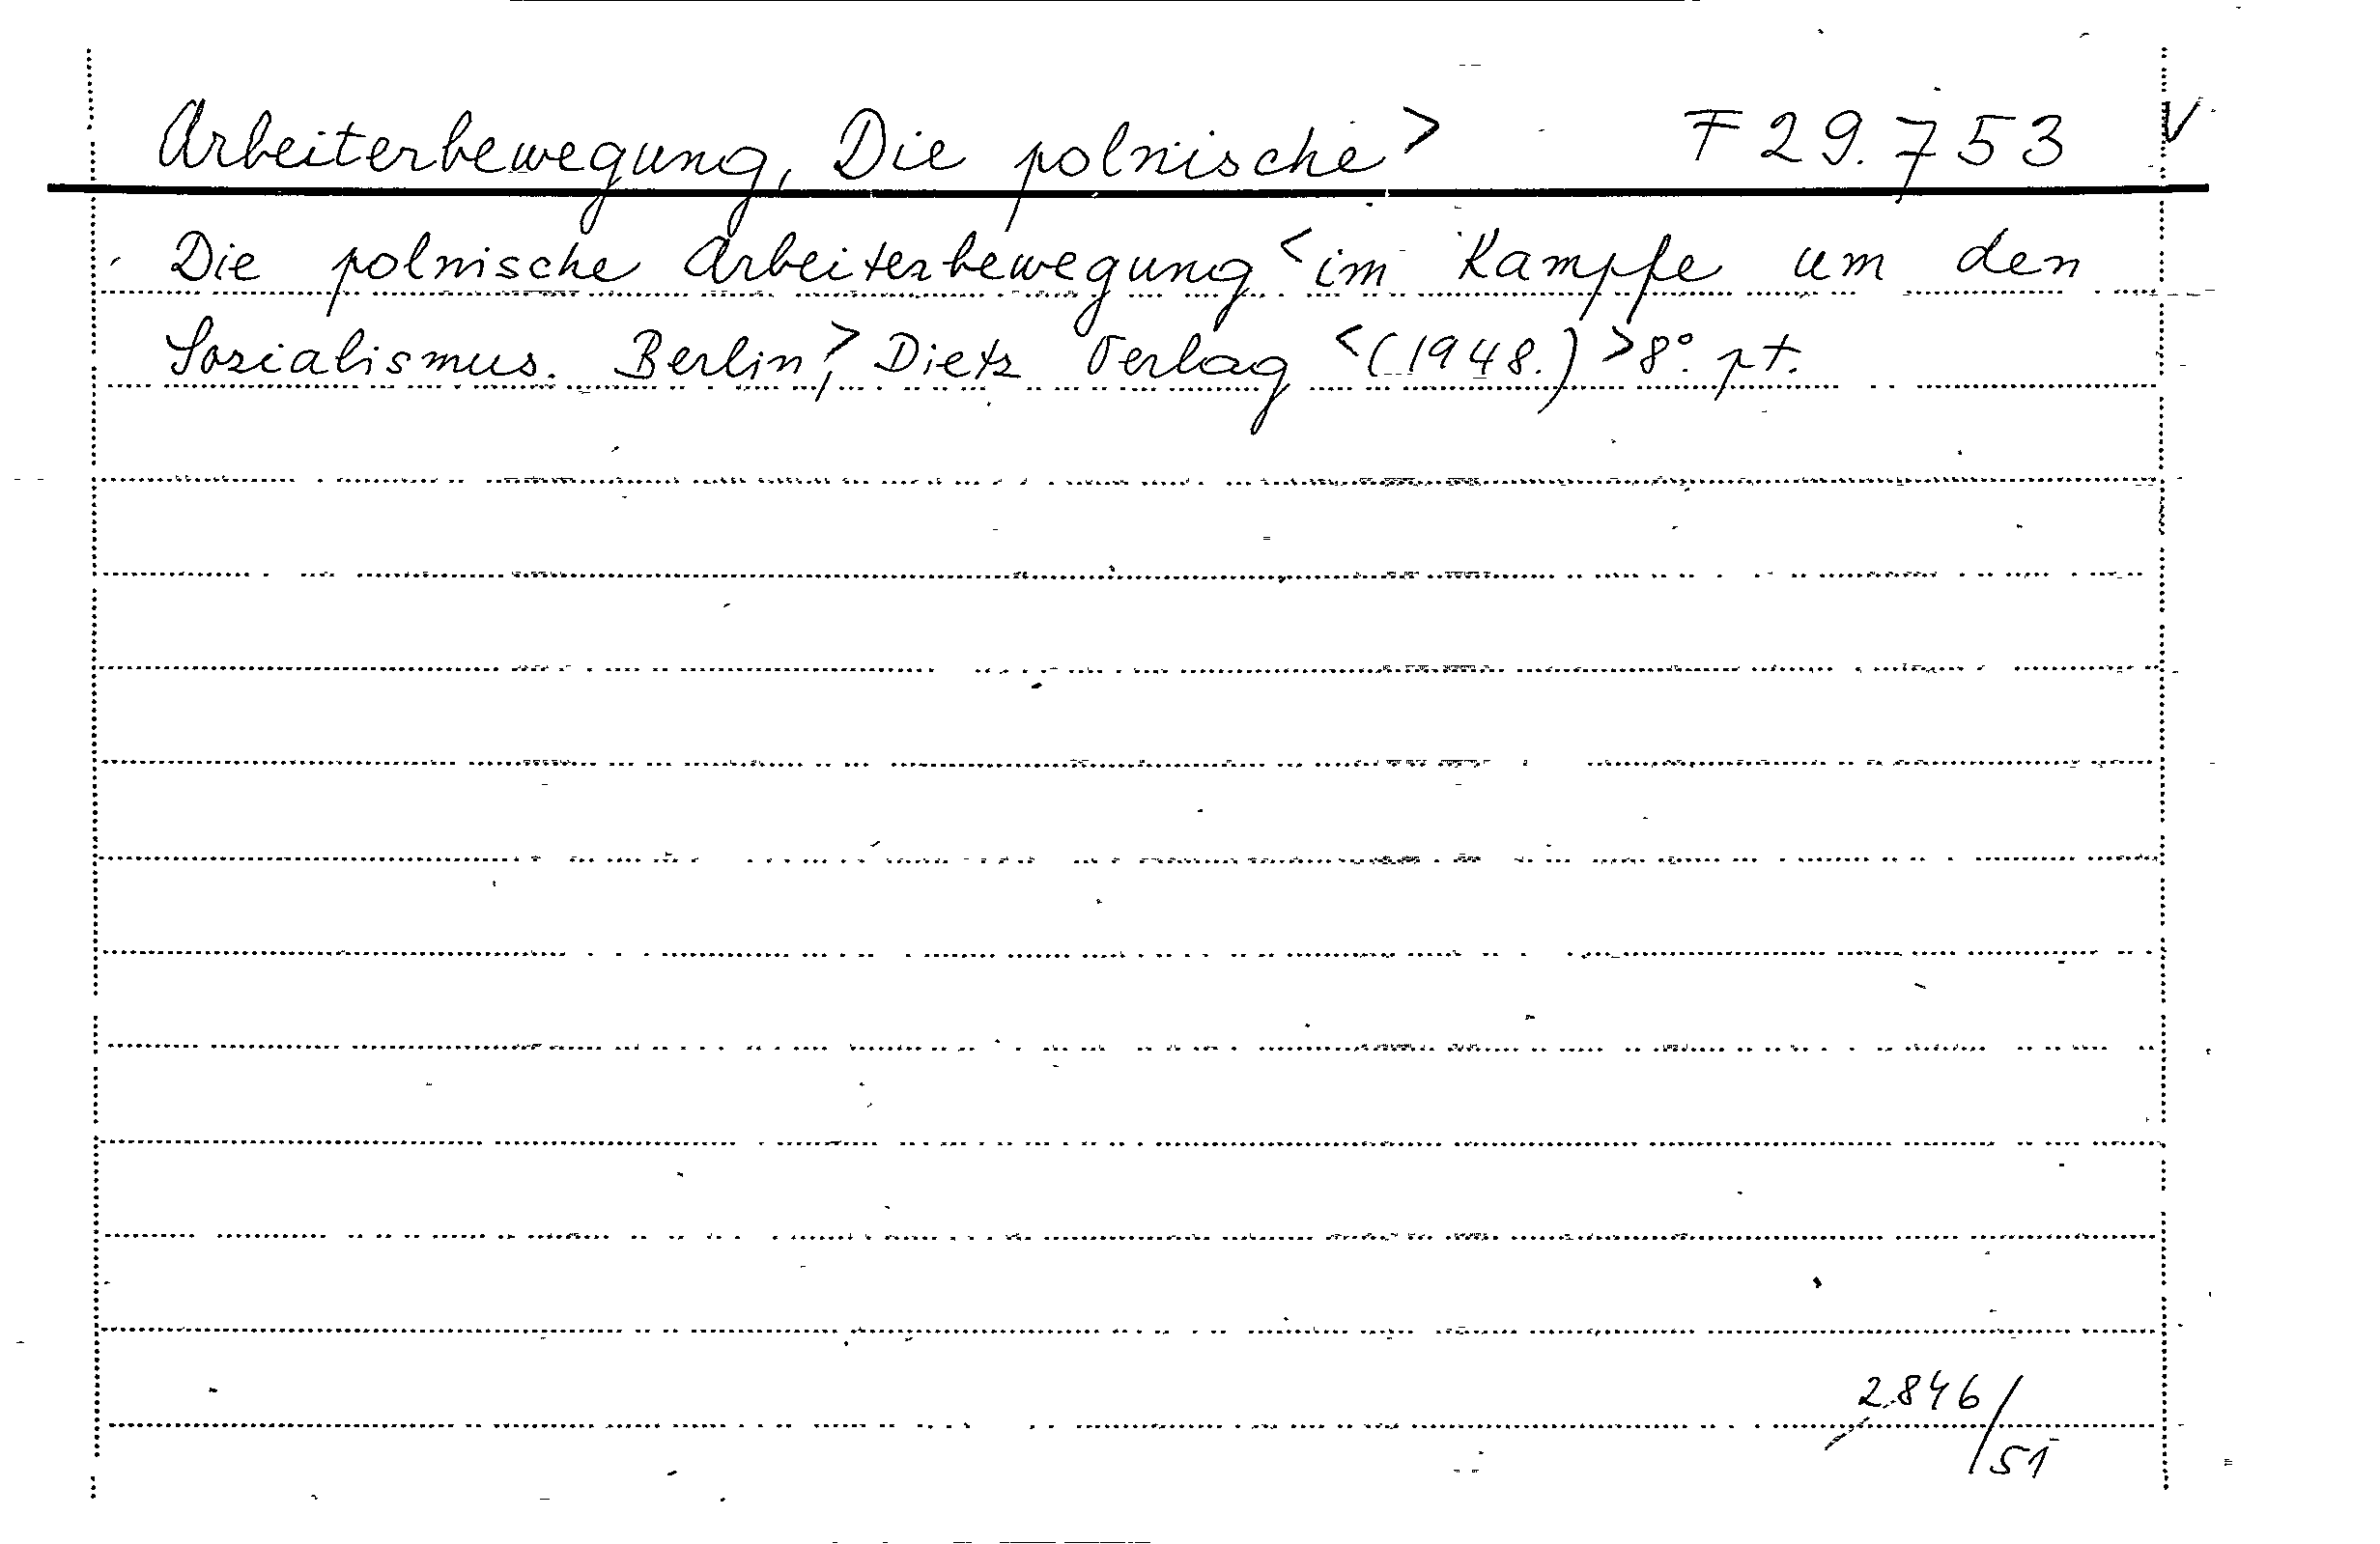 Arbeiterbewegung, Die polnische> F 29.753 V
Die polnische Arbeiterbewegung <im Kampfe um den
Sozialismus. Berlin>, Dietz Verlag <(1948.) >8°. pt.
2846/
51